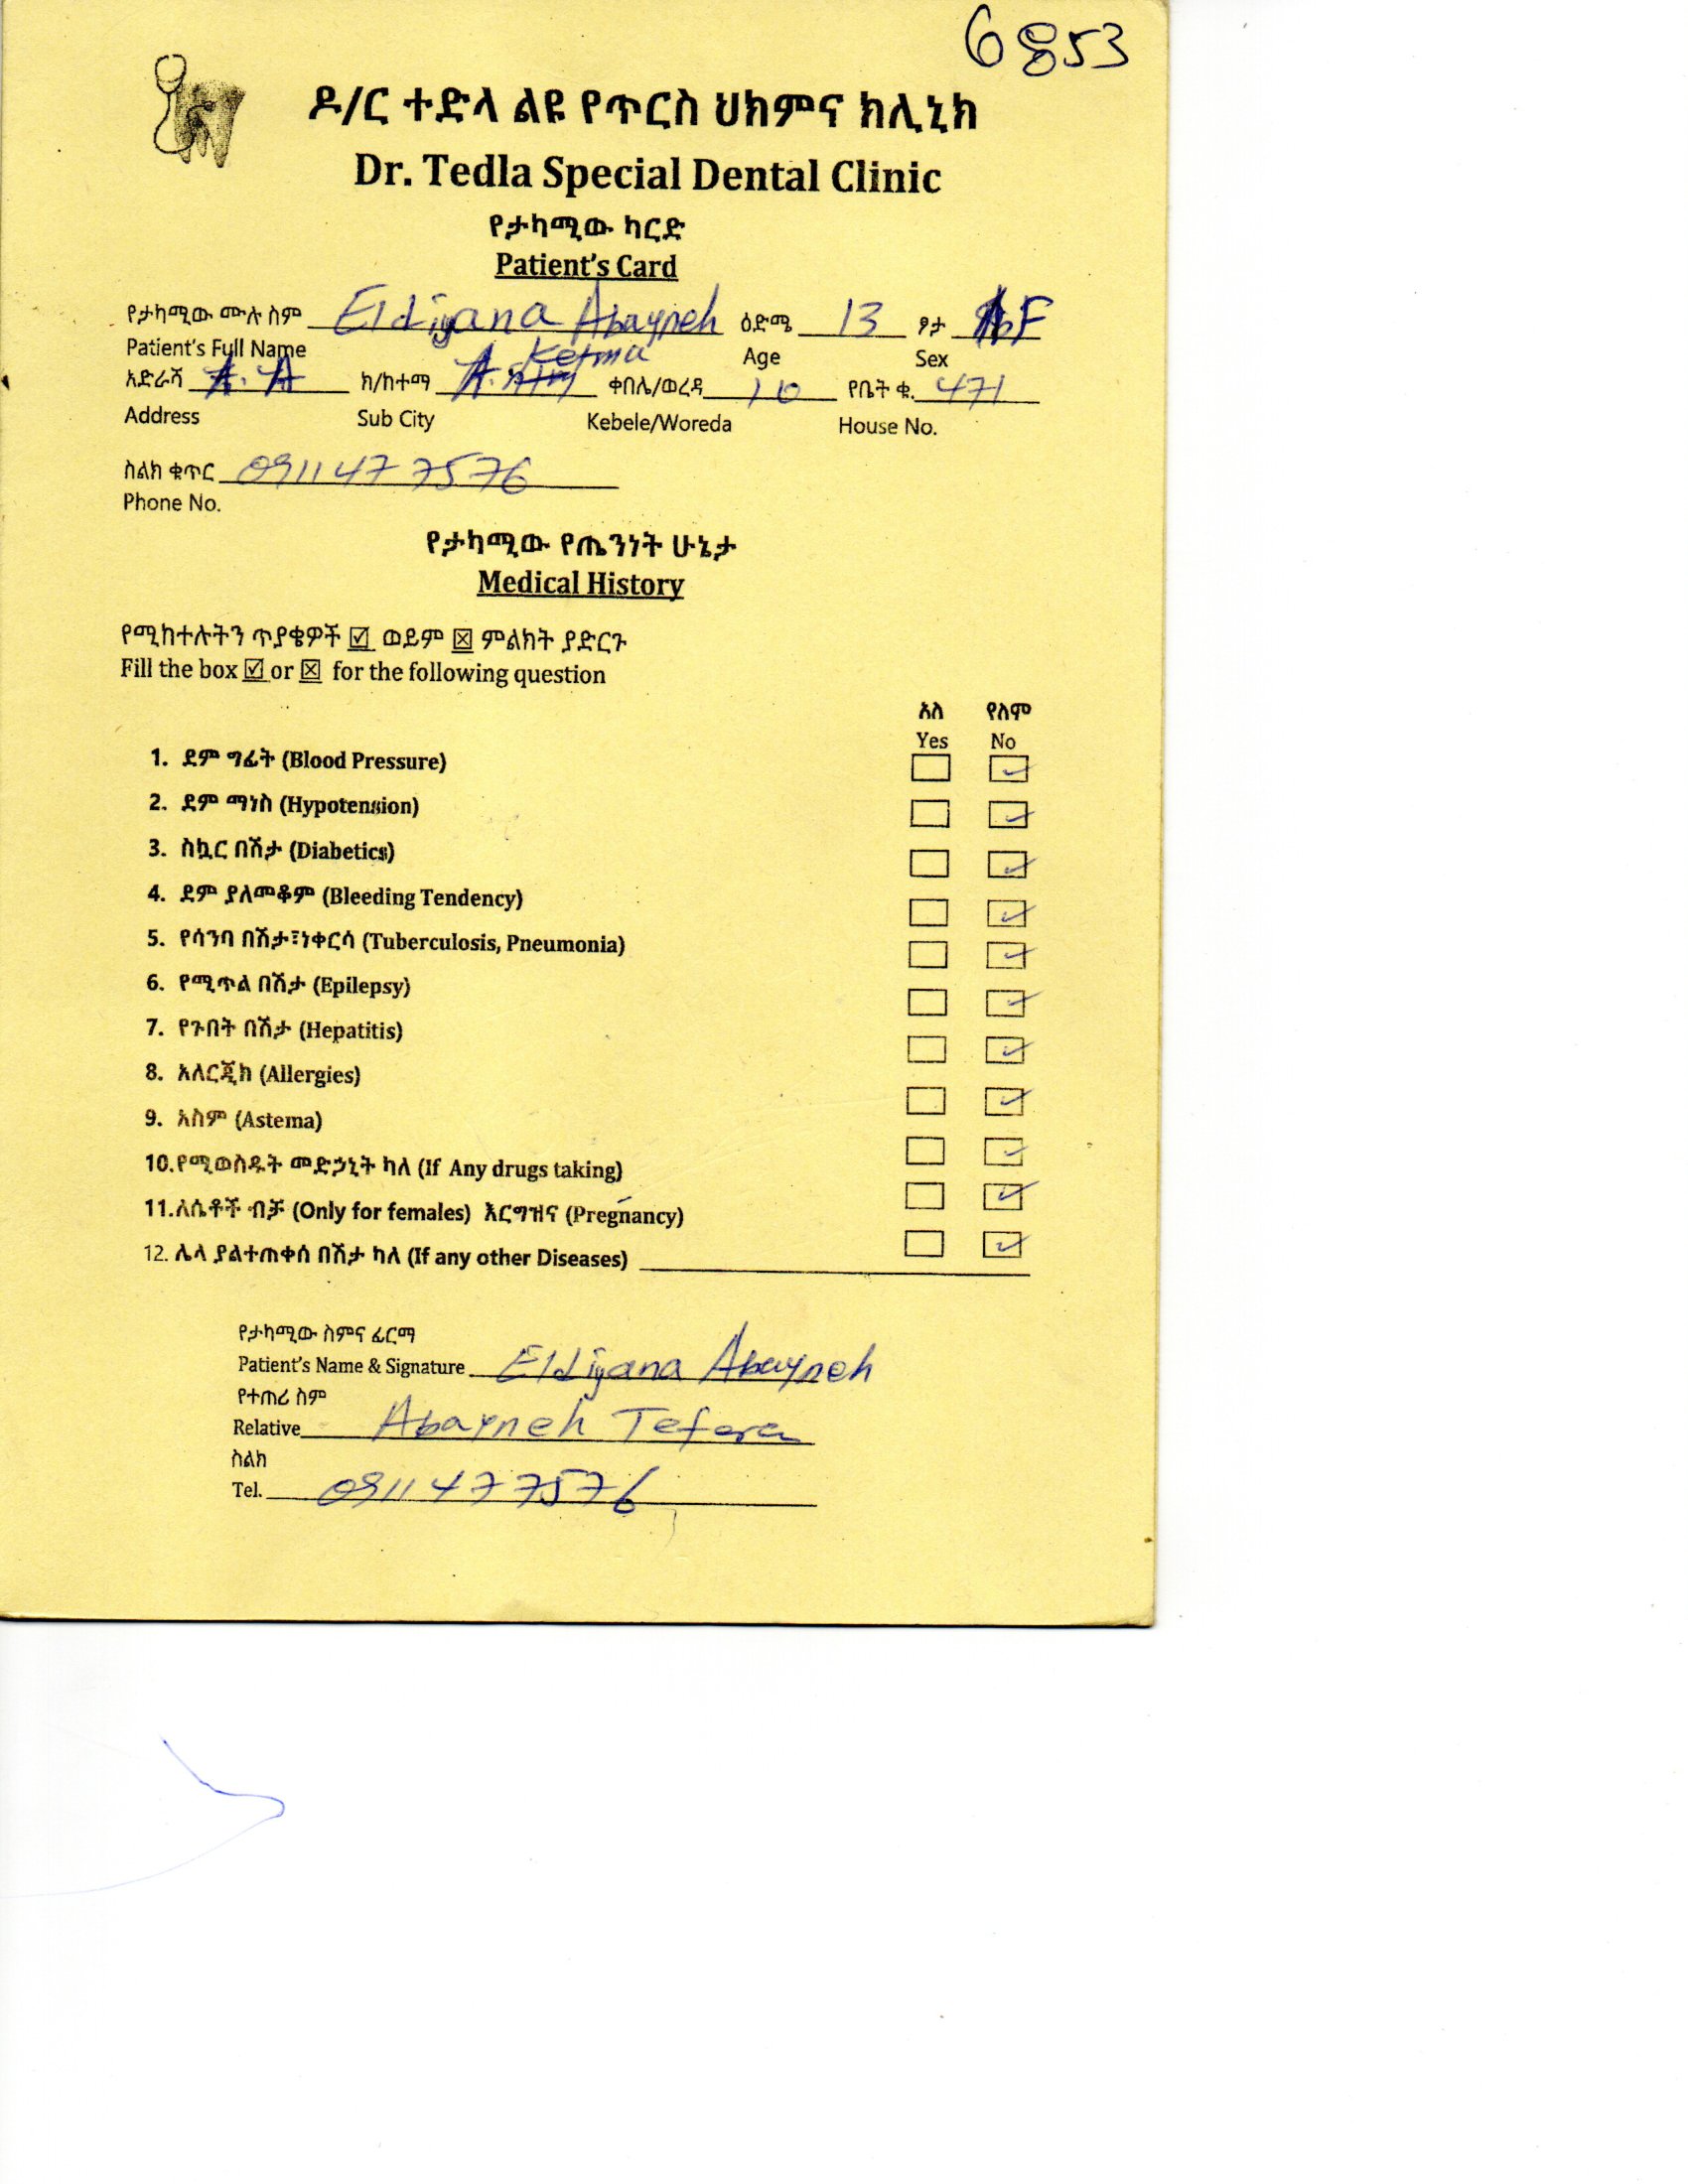 6853
ዶ/ር ተድላ ልዩ የጥርስ ህክምና ክሊኒክ
Dr. Tedla Special Dental Clinic
የታካሚው ካርድ
Patient's Card
የታካሚው ሙሉ ስም Eldiyana Abayneh ዕድሜ 13 ፆታ F
Patient's Full Name Age Sex
Ketma
አድራሻ A.A ክ/ከተማ A. ቀበሌ/ወረዳ 10 የቤት ቁ. 471
Address Sub City Kebele/Woreda House No.
ስልክ ቁጥር 0911477576
Phone No.
የታካሚው የጤንነት ሁኔታ
Medical History
የሚከተሉትን ጥያቄዎች ☑ ወይም ☒ ምልክት ያድርጉ
Fill the box ☑ or ☒ for the following question
አለ የለም
Yes No
1. ደም ግፊት (Blood Pressure)
2. ደም ማነስ (Hypotension)
3. ስኳር በሽታ (Diabetics)
4. ደም ያለመቆም (Bleeding Tendency)
5. የሳንባ በሽታ፣ነቀርሳ (Tuberculosis, Pneumonia)
6. የሚጥል በሽታ (Epilepsy)
7. የጉበት በሽታ (Hepatitis)
8. አለርጂክ (Allergies)
9. አስም (Astema)
10.የሚወስዱት መድኃኒት ካለ (If Any drugs taking)
11.ለሴቶች ብቻ (Only for females) እርግዝና (Pregnancy)
12. ሌላ ያልተጠቀሰ በሽታ ካለ (If any other Diseases)
የታካሚው ስምና ፊርማ
Patient's Name & Signature Eldiyana Abayneh
የተጠሪ ስም
Relative Abayneh Tefera
ስልክ
Tel. 0911477576